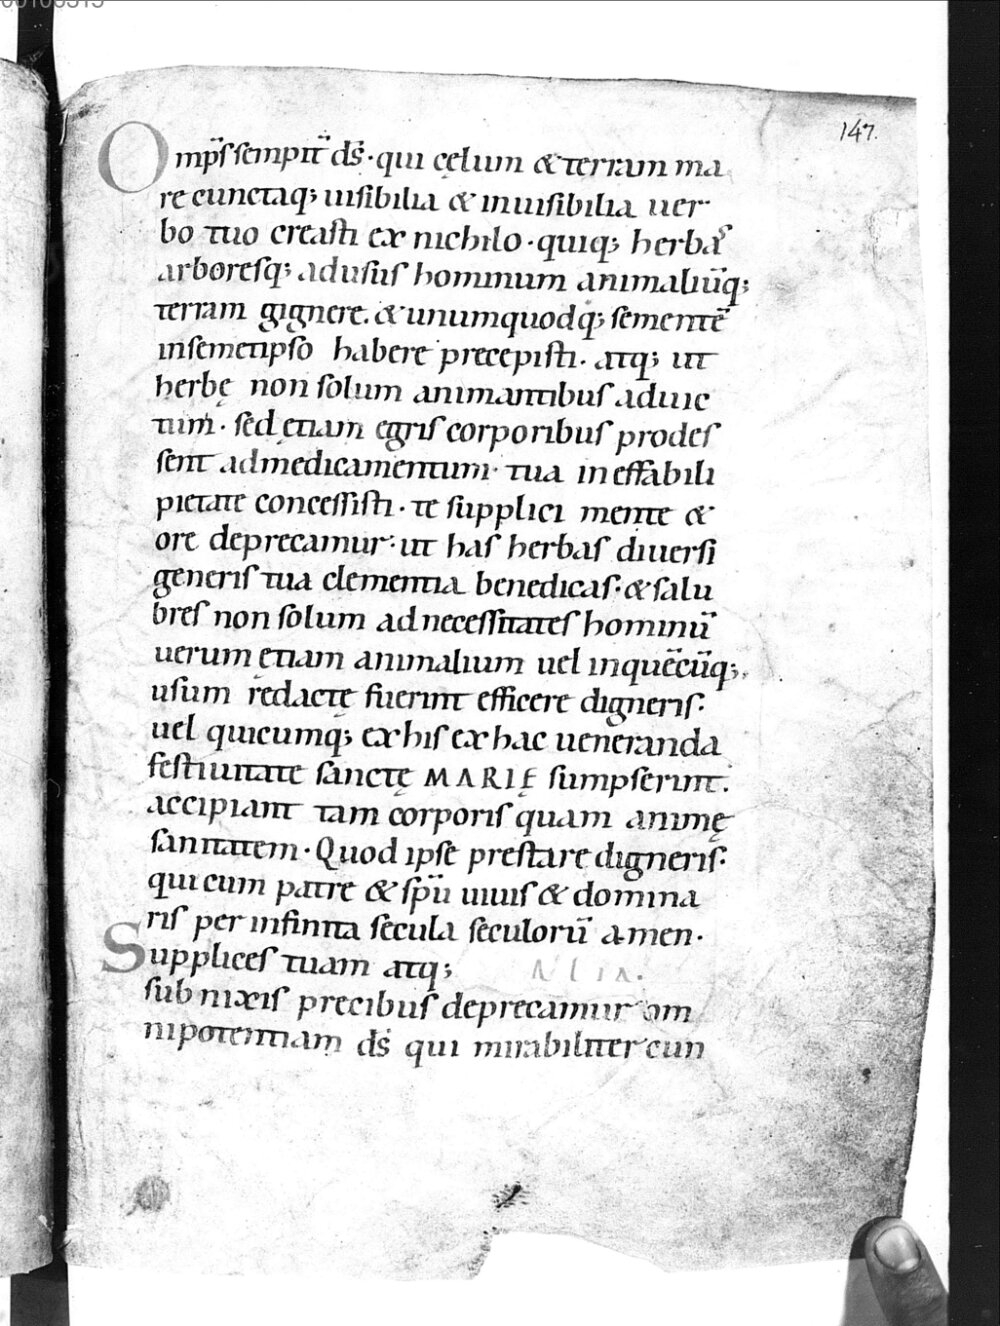 147.
Omp̄s sempit̄ d̄s · qui cęlum & terram ma
re cunctaq; uisibilia & inuisibilia uer
bo tuo creasti ex nichilo · quiq; herbas
arboresq; ad usus hominum animaliūq;
terram gignere. & unumquodq; sementē
in semetipso habere precepisti. atq; ut
herbę non solum animantibus ad uic
tum · sed ętiam egris corporibus prodes
sent ad medicamentum · tua ineffabili
pietate concessisti · te supplici mente &
ore deprecamur · ut has herbas diuersi
generis tua clementia benedicas · & salu
bres non solum ad necessitates hominū
uerum ętiam animalium uel in quēcūq;
usum redactę fuerint efficere digneris ·
uel quicumq; ex his ex hac ueneranda
festiuitate sanctę MARIĘ sumpserint.
accipiant tam corporis quam animę
sanitatem · Quod ipse prestare digneris ·
qui cum patre & sp̄u uiuis & domina
ris per infinita secula seculorū amen ·
Supplices tuam atq; ALIA.
subnixis precibus deprecamur om
nipotentiam d̄s qui mirabiliter cun